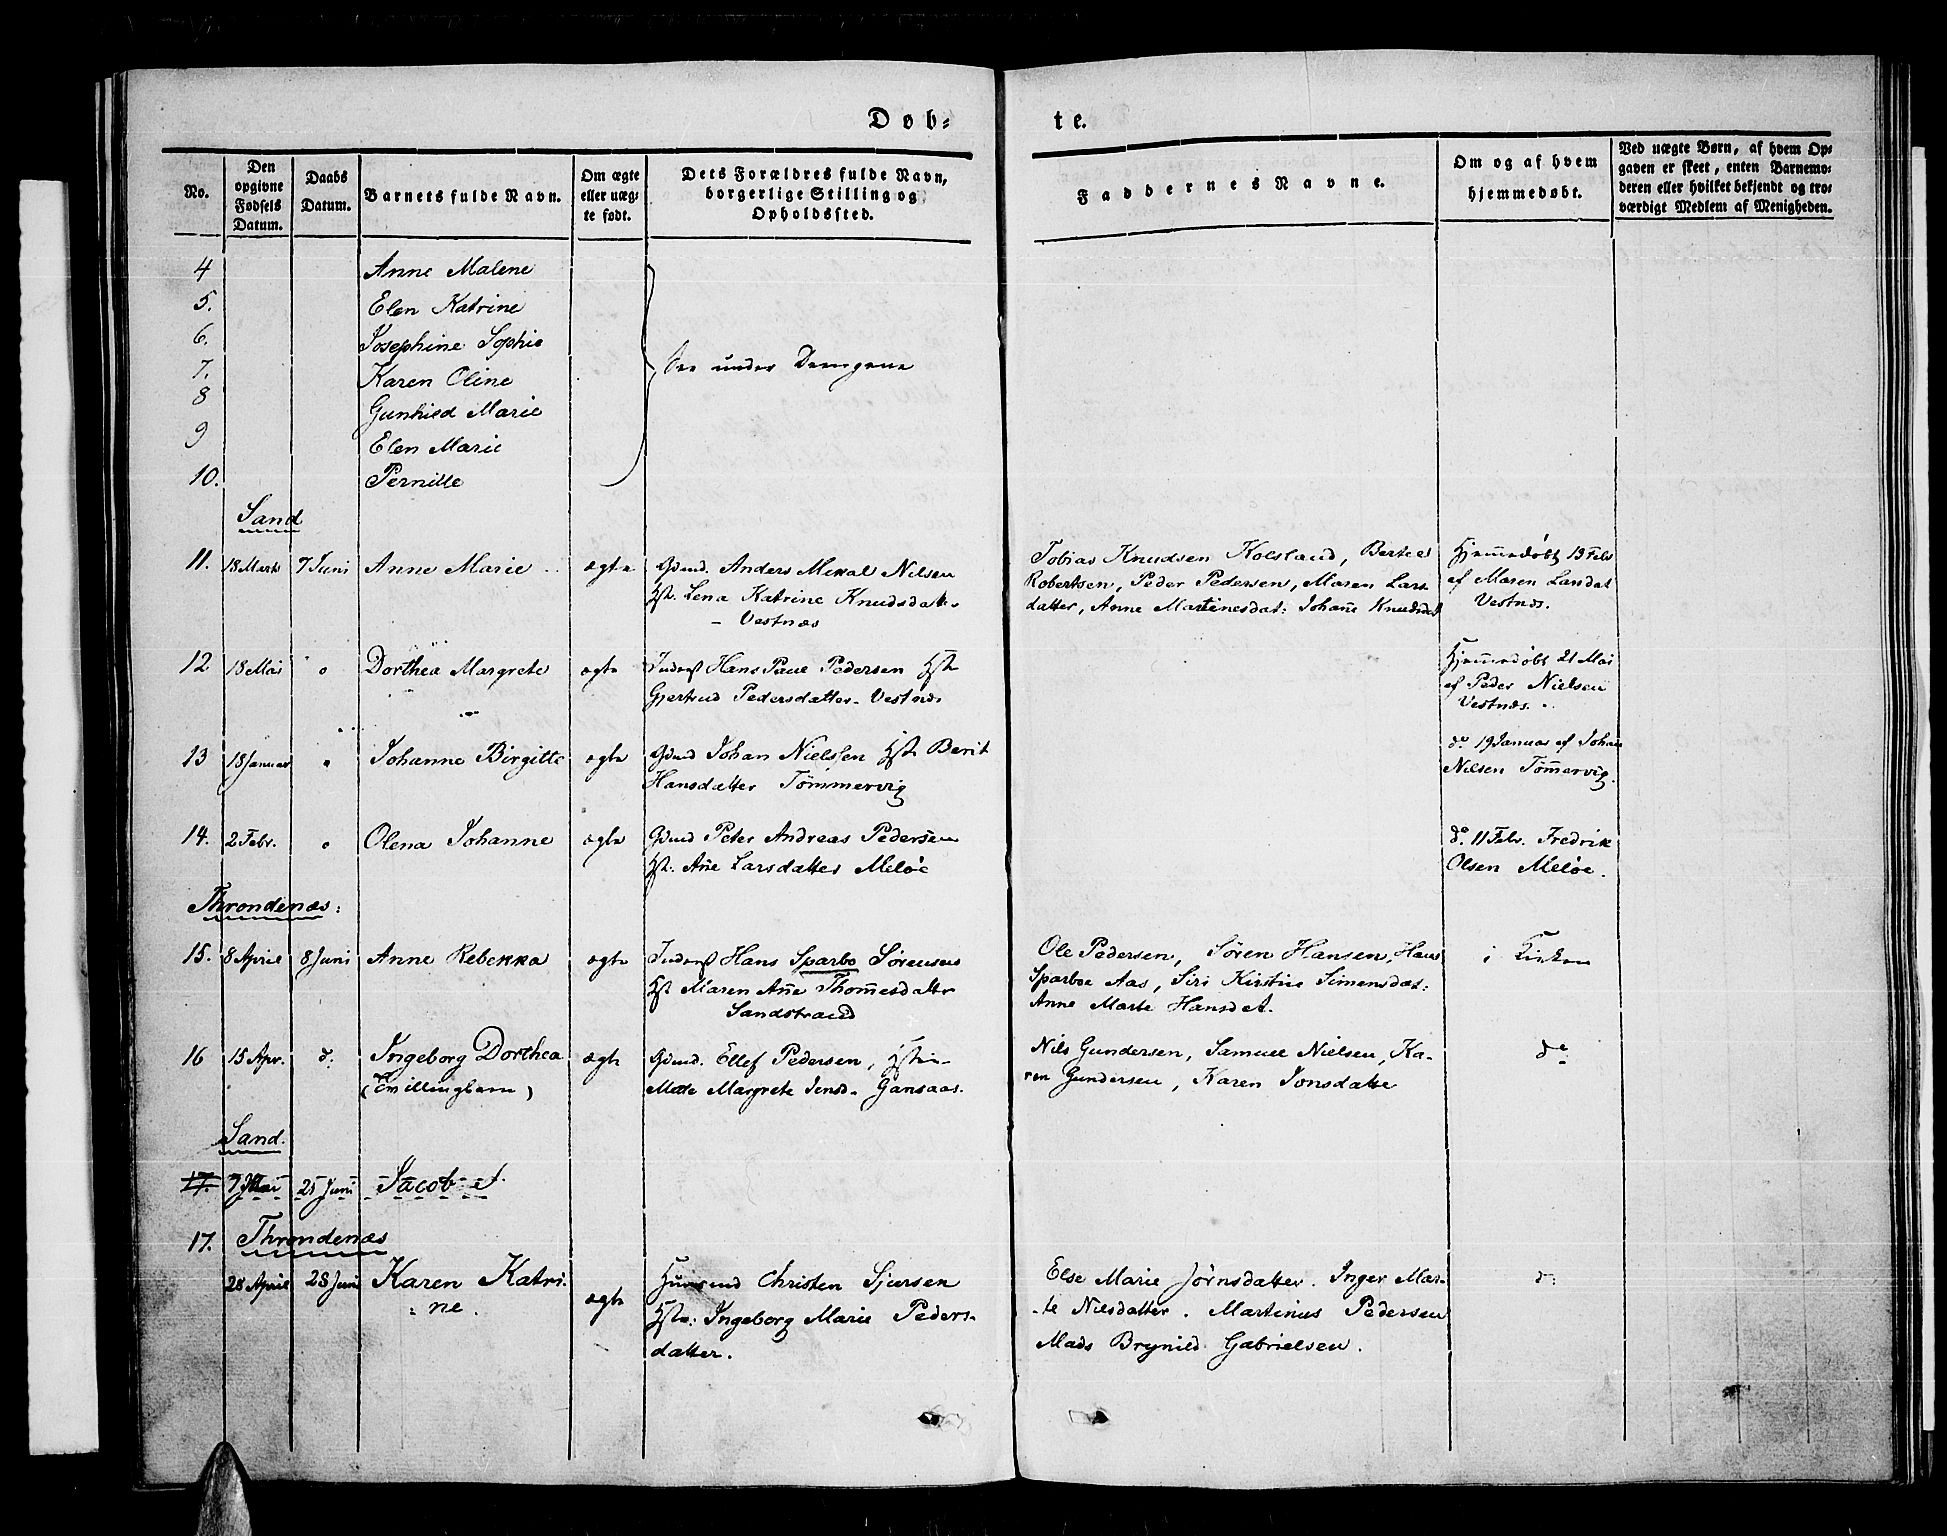 Døb-
te.
No.
Den opgivne Fødsels Datum.
Daabs Datum.
Barnets fulde Navn.
Om ægte eller uæg- te født.
Dets Forældres fulde Navn, borgerlige Stilling og Opholdssted.
Faddernes Navne.
Om og af hvem hjemmedøbt.
Ved uægte Børn, af hvem Op- gaven er skeet, enten Barnemo- deren eller hvilket bekjendt og tro- værdigt Medlem af Menigheden.
4 Anne Malene
5. Elen Katrine
6. Josephine Sophie
7. Karen Oline
See under Drengene
8 Gunhild Marie
9 Elen Marie
10. Pernille
Sand
11. 18 Marts 7 Juni Anne Marie ægte Gdmd. Anders Mikal Nilsen
Hst. Lena Katrine Knudsdatt.
- Vestnæs
Tobias Knudsen Kolsland, Bertel
Robertsen, Peder Pedersen, Maren Lars-
datter, Anne Martinesdat: Johane Knudsdat
Hjemmedøbt 19 Feb
af Maren Larsdat
Vestnæs.
12 18 Mai " Dorthea Margrete ægte Inderst Hans Paul Pedersen Hst
Gjertrud Pedersdatter - Vestnæs
Hjemmedøbt 21 Mai
af Peder Nielsen
Vestnæs.
13 18 Januar " Johanne Birgitte ægte Gdmd Johan Nielsen Hst Berit
Hansdatter Tömmervig
do 19 Januar af Johan
Nilsen Tömervig.
14. 2 Febr. " Olena Johanne ægte Gdmd Peter Andreas Pedersen
Hst. Ane Larsdatter Meløe
do. 11 Febr. Fredrik
Olsen Meløe.
Throndenæs:
15. 8 April 8 Juni Anne Rebekka ægte Inderst Hans Sparbo Sørensen
Hst Maren Ane Thomesdatter
Sandstrand
Ole Pedersen, Søren Hansen, Hans
Sparboe Aas, Siri Kirstine Simensdat:
Anne Marte Hansdat.
i Kirken
16 15 Apr. d. Ingeborg Dorthea
(Tvillingbarn)
ægte Gdmd. Ellef Pedersen, Hst
Mette Margrete Jensd. Gansaas.
Nils Gundersen, Samuel Nielsen, Ka-
ren Gundersen, Karen Jonsdatte
do
Sand.
17. 7 Mai 25 Juni Jacob
17. Throndenæs
28 April 28 Juni Karen Katri-
ne.
ægte
Huusmd Christen Sjursen
Hst: Ingeborg Marie Peders-
datter.
Else Marie Jörnsdatter. Inger Mar-
te Nilsdatter. Martinus Pedersen
Mads Brynild Gabrielsen.
d: